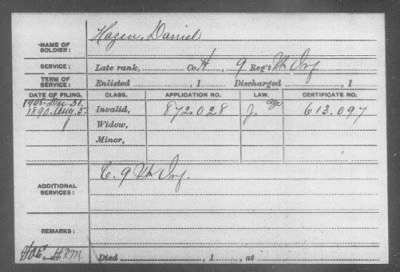 NAME OF SOLDIER: Hazen, Daniel
SERVICE: Late rank, Co. H, 9 Reg't Vt. Inf.
TERM OF SERVICE: Enlisted , 1 Discharged , 1
DATE OF FILING. CLASS. APPLICATION NO. LAW. CERTIFICATE NO.
1908 Dec. 31. age
1890, Aug. 5. Invalid, 872.028 J. 613.097
Widow,
Minor,
ADDITIONAL SERVICES: C. 9 Vt. Inf.
REMARKS:
Died , 1 , at